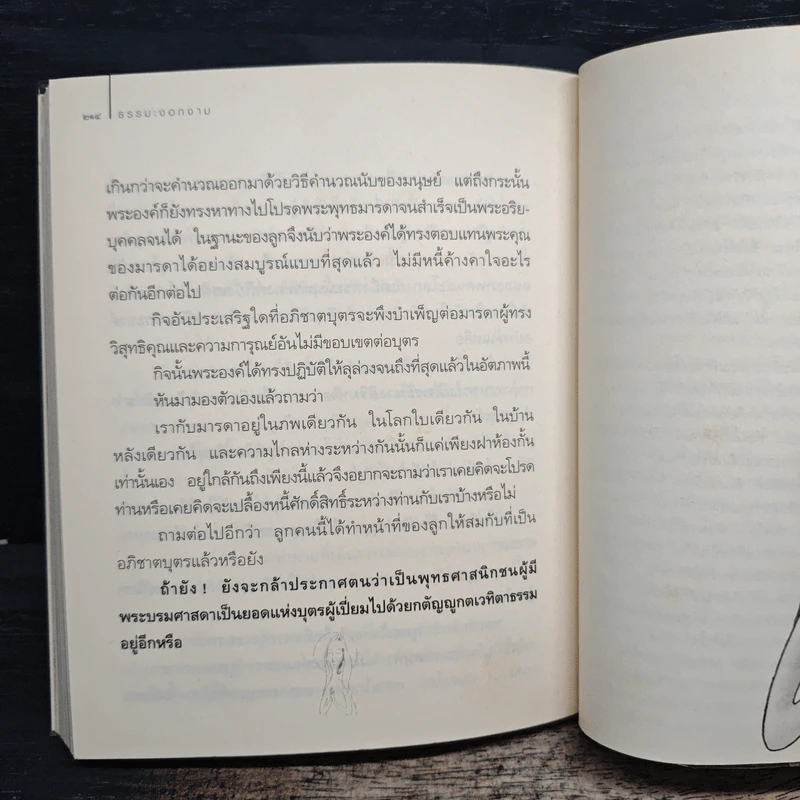 ๒๑๔ ธรรมะงอกงาม
เกินกว่าจะคำนวณออกมาด้วยวิธีคำนวณนับของมนุษย์ แต่ถึงกระนั้น
พระองค์ก็ยังทรงหาทางไปโปรดพระพุทธมารดาจนสำเร็จเป็นพระอริย-
บุคคลจนได้ ในฐานะของลูกจึงนับว่าพระองค์ได้ทรงตอบแทนพระคุณ
ของมารดาได้อย่างสมบูรณ์แบบที่สุดแล้ว ไม่มีหนี้ค้างคาใจอะไร
ต่อกันอีกต่อไป
กิจอันประเสริฐใดที่อภิชาตบุตรจะพึงบำเพ็ญต่อมารดาผู้ทรง
วิสุทธิคุณและความการุณย์อันไม่มีขอบเขตต่อบุตร
กิจนั้นพระองค์ได้ทรงปฏิบัติให้ลุล่วงจนถึงที่สุดแล้วในอัตภาพนี้
หันมามองตัวเองแล้วถามว่า
เรากับมารดาอยู่ในภพเดียวกัน ในโลกใบเดียวกัน ในบ้าน
หลังเดียวกัน และความไกลห่างระหว่างกันนั้นก็แค่เพียงฝาห้องกั้น
เท่านั้นเอง อยู่ใกล้กันถึงเพียงนี้แล้วจึงอยากจะถามว่าเราเคยคิดจะโปรด
ท่านหรือเคยคิดจะเปลื้องหนี้ศักดิ์สิทธิ์ระหว่างท่านกับเราบ้างหรือไม่
ถามต่อไปอีกว่า ลูกคนนี้ได้ทำหน้าที่ของลูกให้สมกับที่เป็น
อภิชาตบุตรแล้วหรือยัง
ถ้ายัง ! ยังจะกล้าประกาศตนว่าเป็นพุทธศาสนิกชนผู้มี
พระบรมศาสดาเป็นยอดแห่งบุตรผู้เปี่ยมไปด้วยกตัญญูกตเวทิตาธรรม
อยู่อีกหรือ